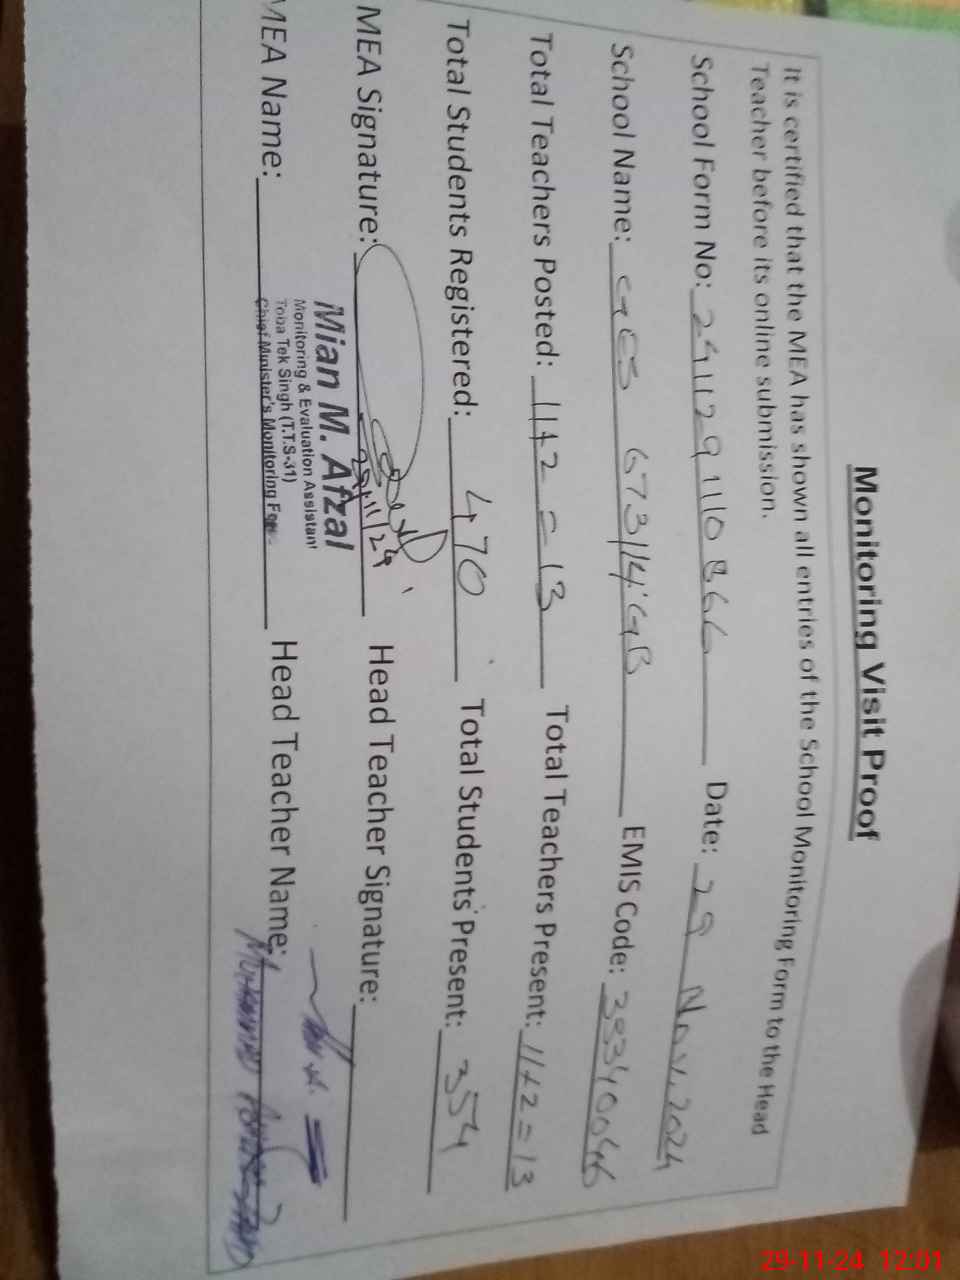 Monitoring Visit Proof
It is certified that the MEA has shown all entries of the School Monitoring Form to the Head
Teacher before its online submission.
School Form No: 241129110866 Date: 29 Nov. 2024
School Name: GES 673/14 GB EMIS Code:
Total Teachers Posted: 11+2=13 Total Teachers Present: 11+2=13
Total Students Registered: 470 Total Students Present: 354
MEA Signature: 29/11/24 Head Teacher Signature:
Mian M. Afzal
Monitoring & Evaluation Assistant
Toba Tek Singh (T.T.S-31)
Chief Minister's Monitoring Force
MEA Name: Head Teacher Name: Muhammad
29-11-24 12:01